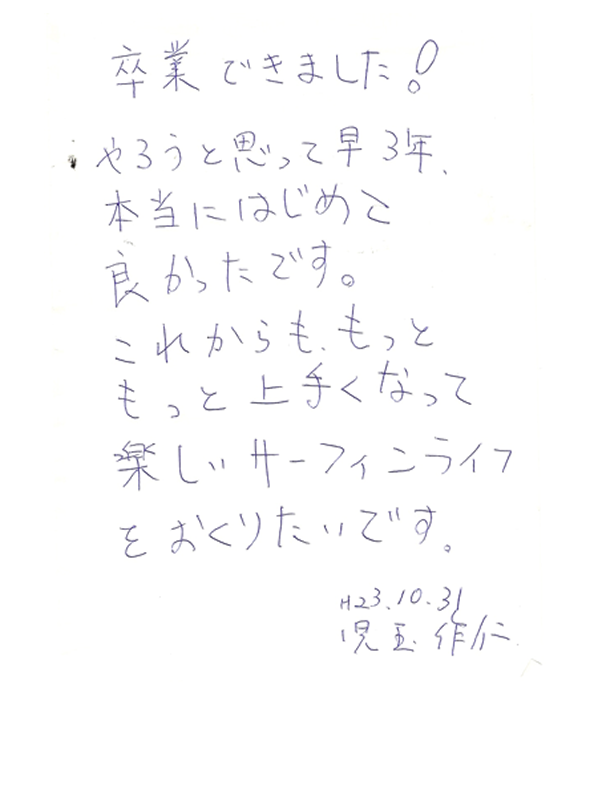 卒業できました!
やろうと思って早3年、
本当にはじめて
良かったです。
これからも、もっと
もっと上手くなって
楽しいサーフィンライフ
をおくりたいです。
H23.10.31
児玉 作仁